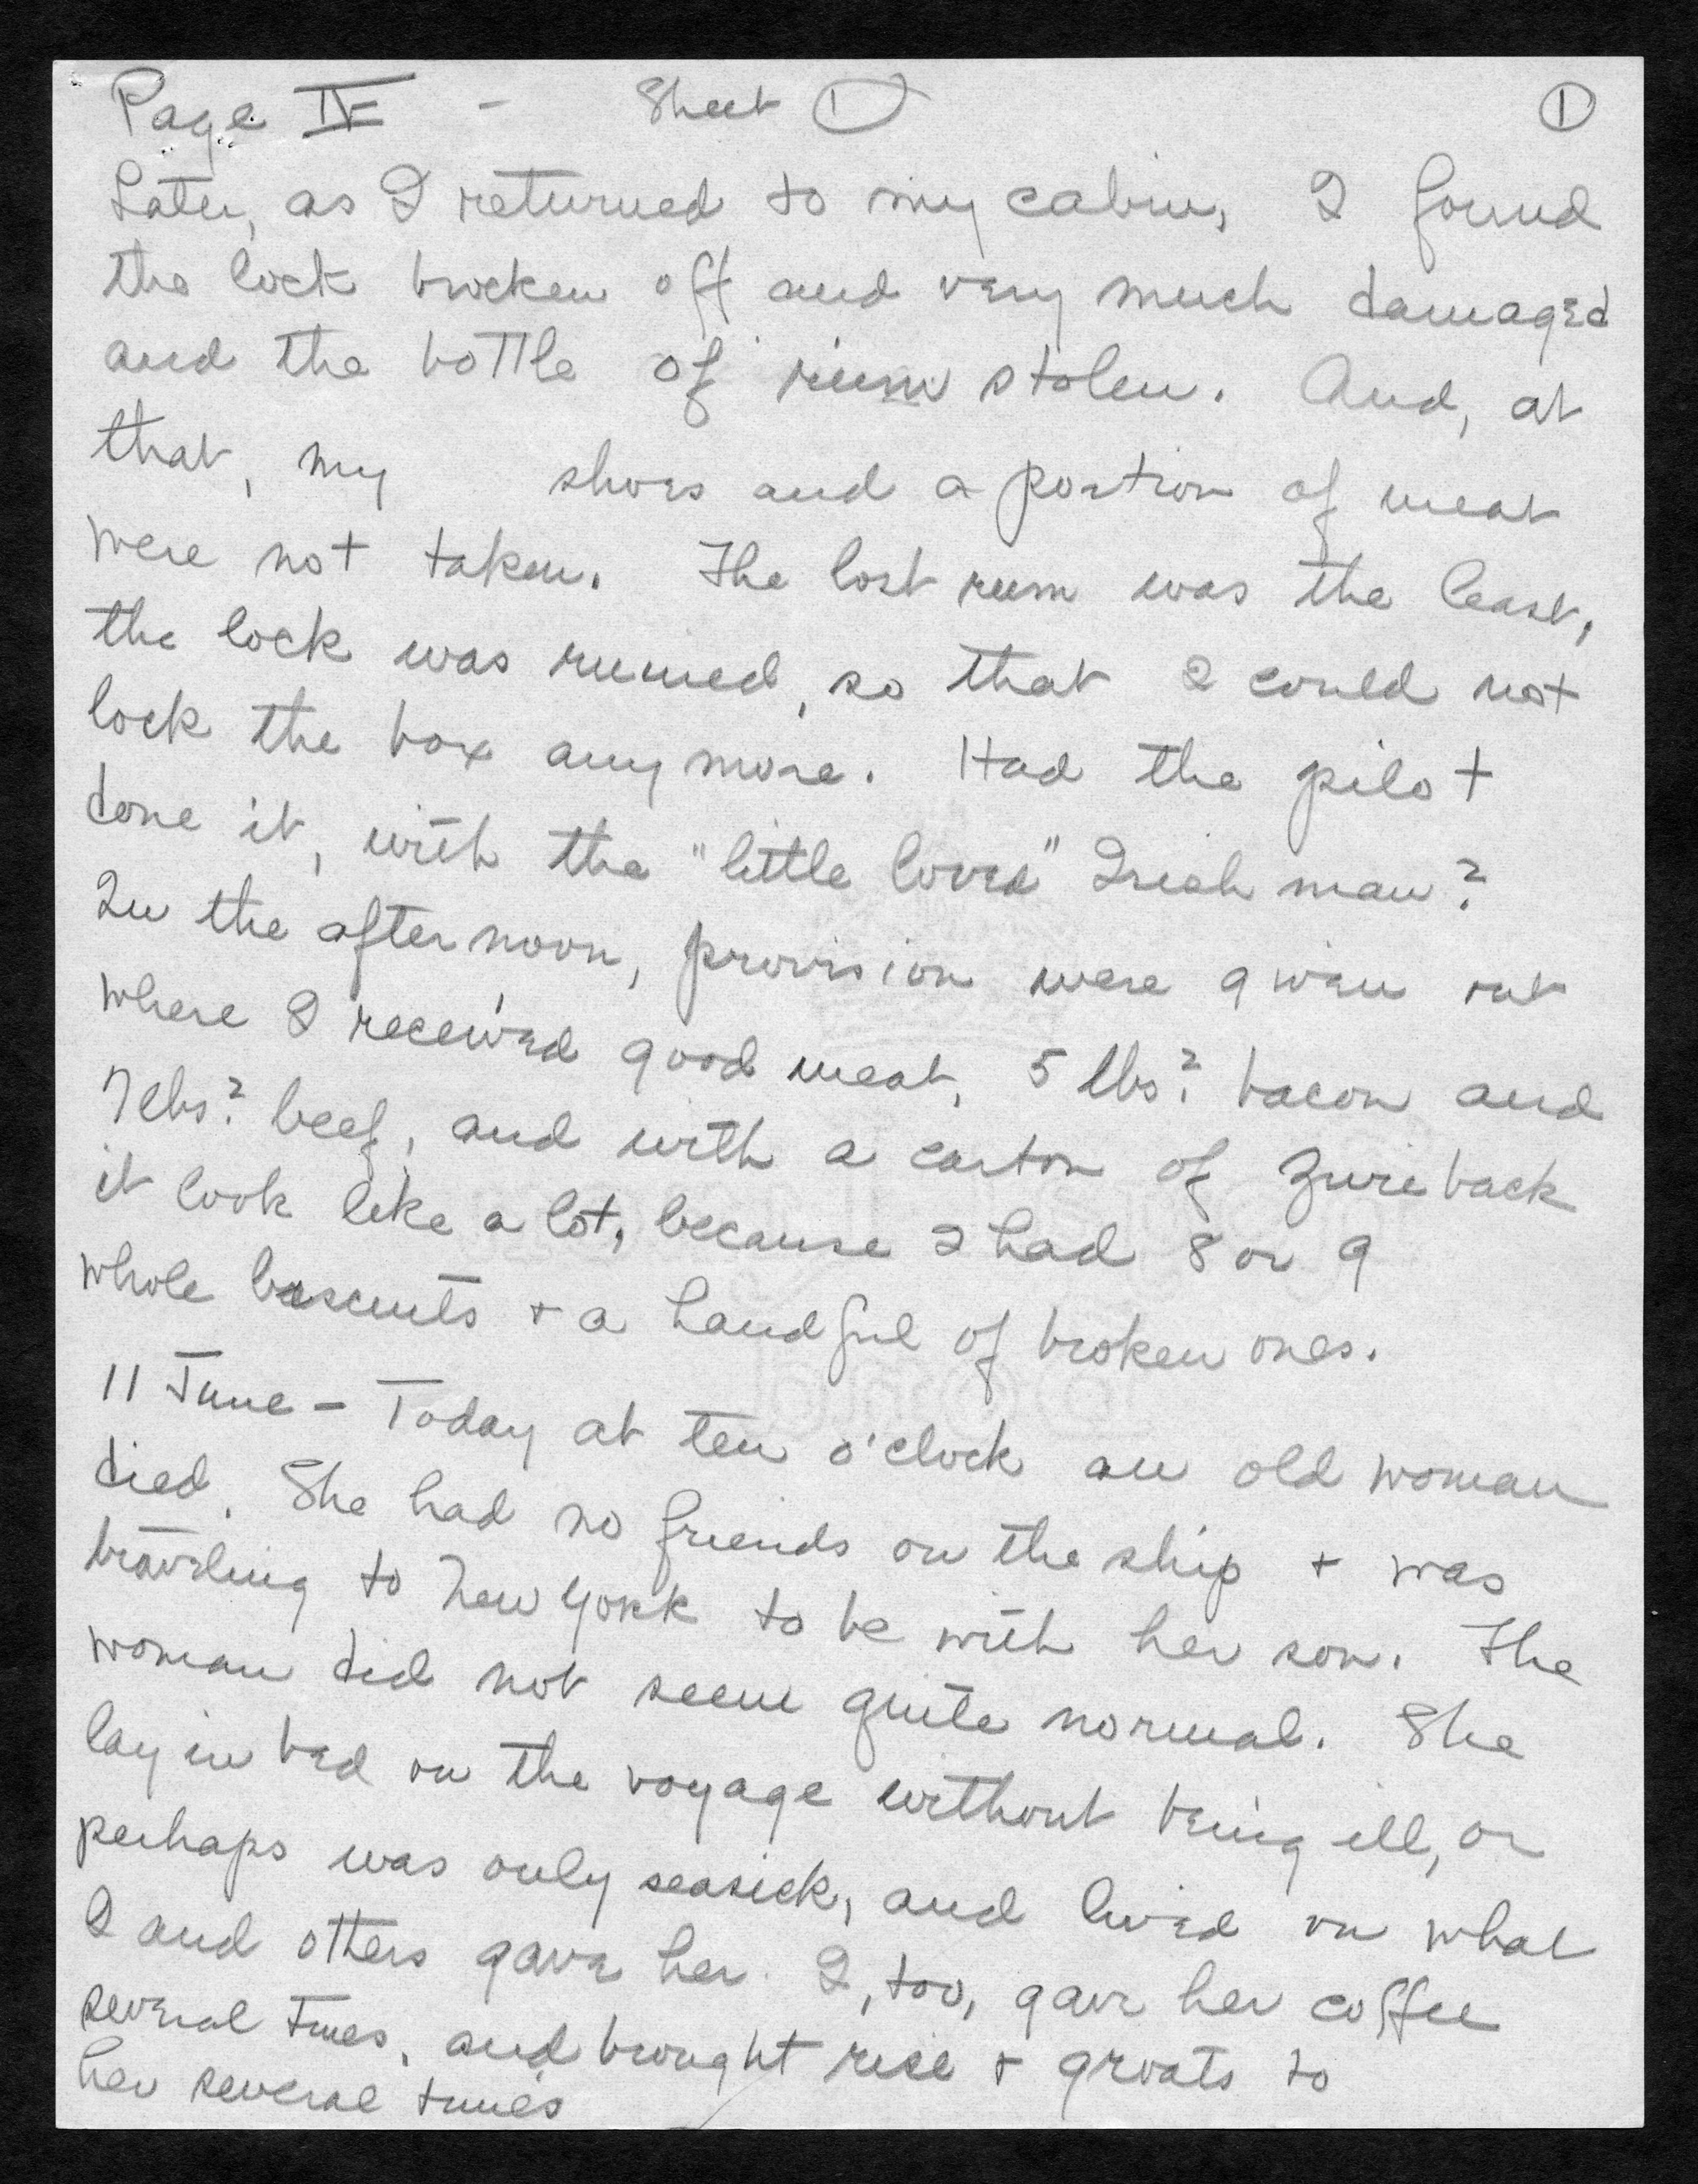 Page IV - Sheet 1 1
Later, as I returned to my cabin, I found
the lock brocken off and very much damaged
and the bottle of rum stolen. And, at
that, my shoes and a portion of meat
were not taken. The lost rum was the least,
the lock was ruined, so that I could not
lock the box any more. Had the pilot
done it, with the "little loved" Irish man?
In the afternoon, provision were given out
where I received good meat, 5 lbs? bacon and
7 lbs? beef, and with a carton of Zwieback
it look like a lot, because I had 8 or 9
whole biscuits + a handful of broken ones.
11 June - Today at ten o'clock an old woman
died. She had no friends on the ship + was
traveling to New York to be with her son. The
woman did not seem quite normal. She
lay in bed on the voyage without being ill, or
perhaps was only seasick, and lived on what
I and others gave her. I, too, gave her coffee
several times, and brought rice + groats to
her several times